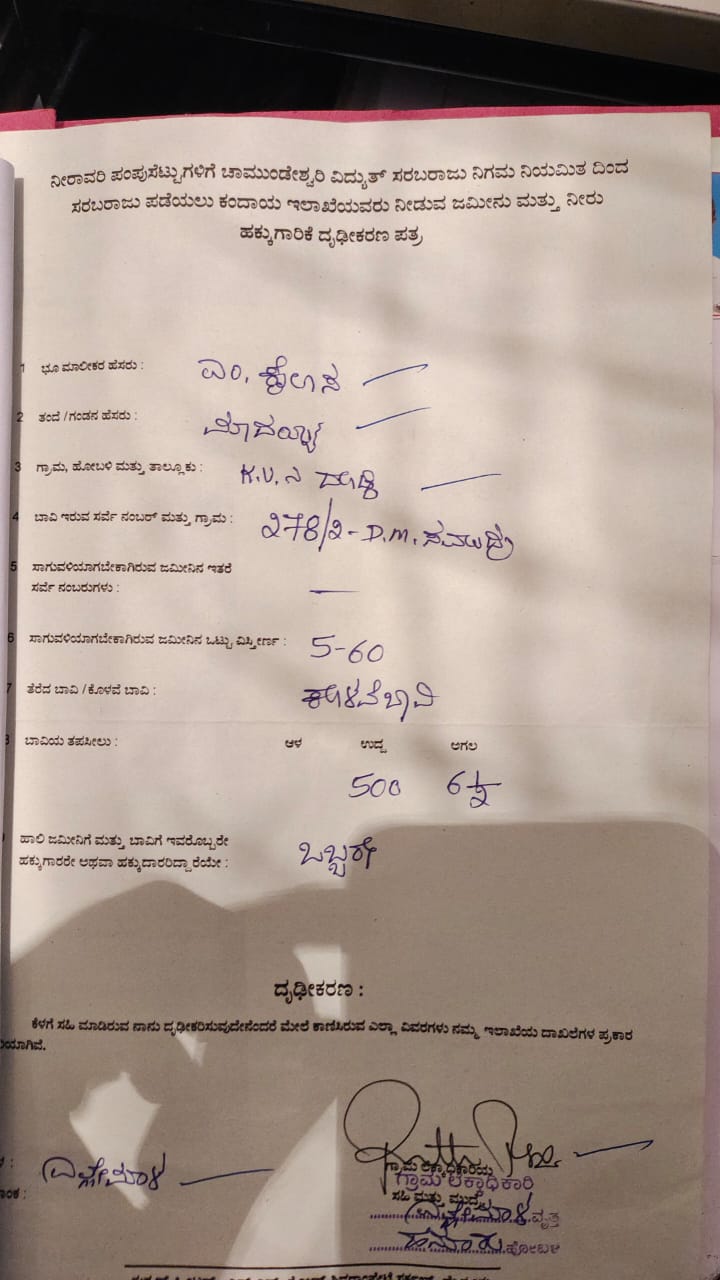 ನೀರಾವರಿ ಪಂಪುಸೆಟ್ಟುಗಳಿಗೆ ಚಾಮುಂಡೇಶ್ವರಿ ವಿದ್ಯುತ್ ಸರಬರಾಜು ನಿಗಮ ನಿಯಮಿತ ದಿಂದ
ಸರಬರಾಜು ಪಡೆಯಲು ಕಂದಾಯ ಇಲಾಖೆಯವರು ನೀಡುವ ಜಮೀನು ಮತ್ತು ನೀರು
ಹಕ್ಕುಗಾರಿಕೆ ದೃಢೀಕರಣ ಪತ್ರ
1 ಭೂ ಮಾಲೀಕರ ಹೆಸರು : ಎಂ.
2 ತಂದೆ / ಗಂಡನ ಹೆಸರು : ಮಾದಯ್ಯ
3 ಗ್ರಾಮ, ಹೋಬಳಿ ಮತ್ತು ತಾಲ್ಲೂಕು : K.V.ನ ದೊಡ್ಡಿ
4 ಬಾವಿ ಇರುವ ಸರ್ವೆ ನಂಬರ್ ಮತ್ತು ಗ್ರಾಮ : ೨78/೨ - D.M. ಸಮುದ್ರ
5 ಸಾಗುವಳಿಯಾಗಬೇಕಾಗಿರುವ ಜಮೀನಿನ ಇತರೆ
ಸರ್ವೆ ನಂಬರುಗಳು : —
6 ಸಾಗುವಳಿಯಾಗಬೇಕಾಗಿರುವ ಜಮೀನಿನ ಒಟ್ಟು ವಿಸ್ತೀರ್ಣ : 5-60
7 ತೆರೆದ ಬಾವಿ / ಕೊಳವೆ ಬಾವಿ : ಕೊಳವೆಬಾವಿ
8 ಬಾವಿಯ ತಪಸೀಲು : ಆಳ ಉದ್ದ ಅಗಲ
500 6½
ಹಾಲಿ ಜಮೀನಿಗೆ ಮತ್ತು ಬಾವಿಗೆ ಇವರೊಬ್ಬರೇ
ಹಕ್ಕುಗಾರರೇ ಅಥವಾ ಹಕ್ಕುದಾರರಿದ್ದಾರೆಯೇ : ಒಬ್ಬರೇ
ದೃಢೀಕರಣ :
ಕೆಳಗೆ ಸಹಿ ಮಾಡಿರುವ ನಾನು ದೃಢೀಕರಿಸುವುದೇನೆಂದರೆ ಮೇಲೆ ಕಾಣಿಸಿರುವ ಎಲ್ಲಾ ವಿವರಗಳು ನಮ್ಮ ಇಲಾಖೆಯ ದಾಖಲೆಗಳ ಪ್ರಕಾರ
ಗ್ರಾಮ ಲೆಕ್ಕಾಧಿಕಾರಿಯ
ಗ್ರಾಮ ಲೆಕ್ಕಾಧಿಕಾರಿ
ಸಹಿ ಮತ್ತು ಮುದ್ರೆ
ವೃತ್ತ
ಹನೂರು ಹೋಬಳಿ